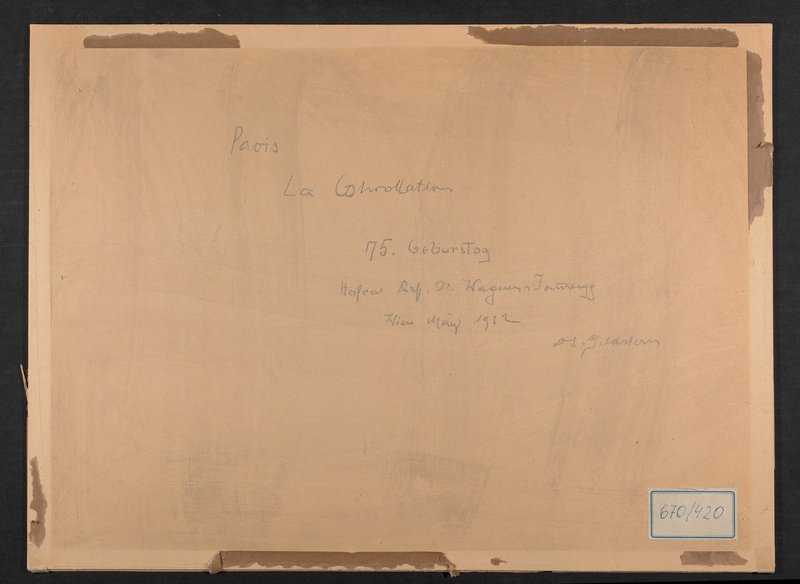 Paris
La
75. Geburstag
Hofrat Prf. Dr. Wagner-Jauregg
Wien März 1932
670/420